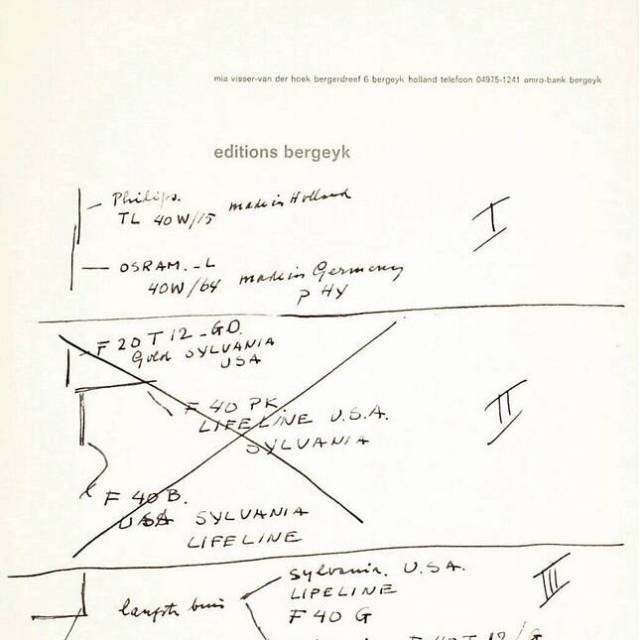 mia visser-van der hoek bergerdreef 6 bergeyk holland telefoon 04975-1241 amro-bank bergeyk
editions bergeyk
Philips. made in Holland
TL 40W/15
I
OSRAM.-L made in Germany
40W/64 P HY
F 20 T 12-GO
Gold SYLVANIA
USA
F 40 PK
LIFELINE U.S.A.
SYLVANIA
II
F 40 B.
USA SYLVANIA
LIFELINE
sylvania. U.S.A.
LIPELINE
III
langste buis
F 40 G